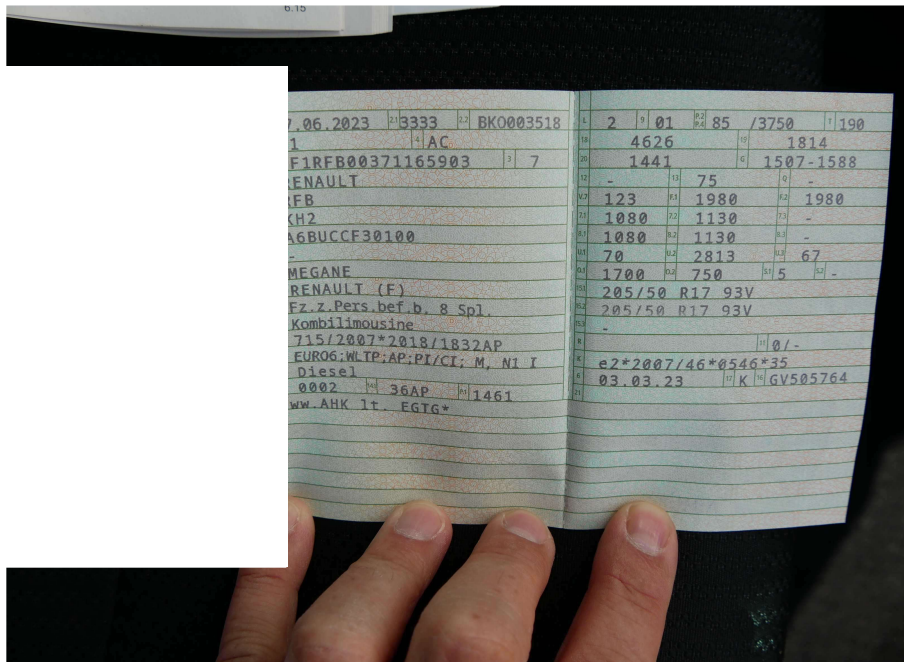 6.15
7.06.2023 2.1 3333 2.2 BKO003518
1 4 AC
F1RFB00371165903 3 7
RENAULT
RFB
KH2
A6BUCCF30100
-
MEGANE
RENAULT (F)
Fz.z.Pers.bef.b. 8 Spl.
Kombilimousine
715/2007*2018/1832AP
EURO6;WLTP;AP;PI/CI; M, N1 I
Diesel
0002 14.1 36AP P.1 1461
ww.AHK lt. EGTG*
L 2 9 01 P.2 P.4 85 /3750 T 190
18 4626 19 1814
20 1441 G 1507-1588
12 - 13 75 Q -
V.7 123 F.1 1980 F.2 1980
7.1 1080 7.2 1130 7.3 -
8.1 1080 8.2 1130 8.3 -
U.1 70 U.2 2813 U.3 67
O.1 1700 O.2 750 S.1 5 S.2 -
15.1 205/50 R17 93V
15.2 205/50 R17 93V
15.3 -
R 11 0/-
K e2*2007/46*0546*35
6 03.03.23 17 K 16 GV505764
21